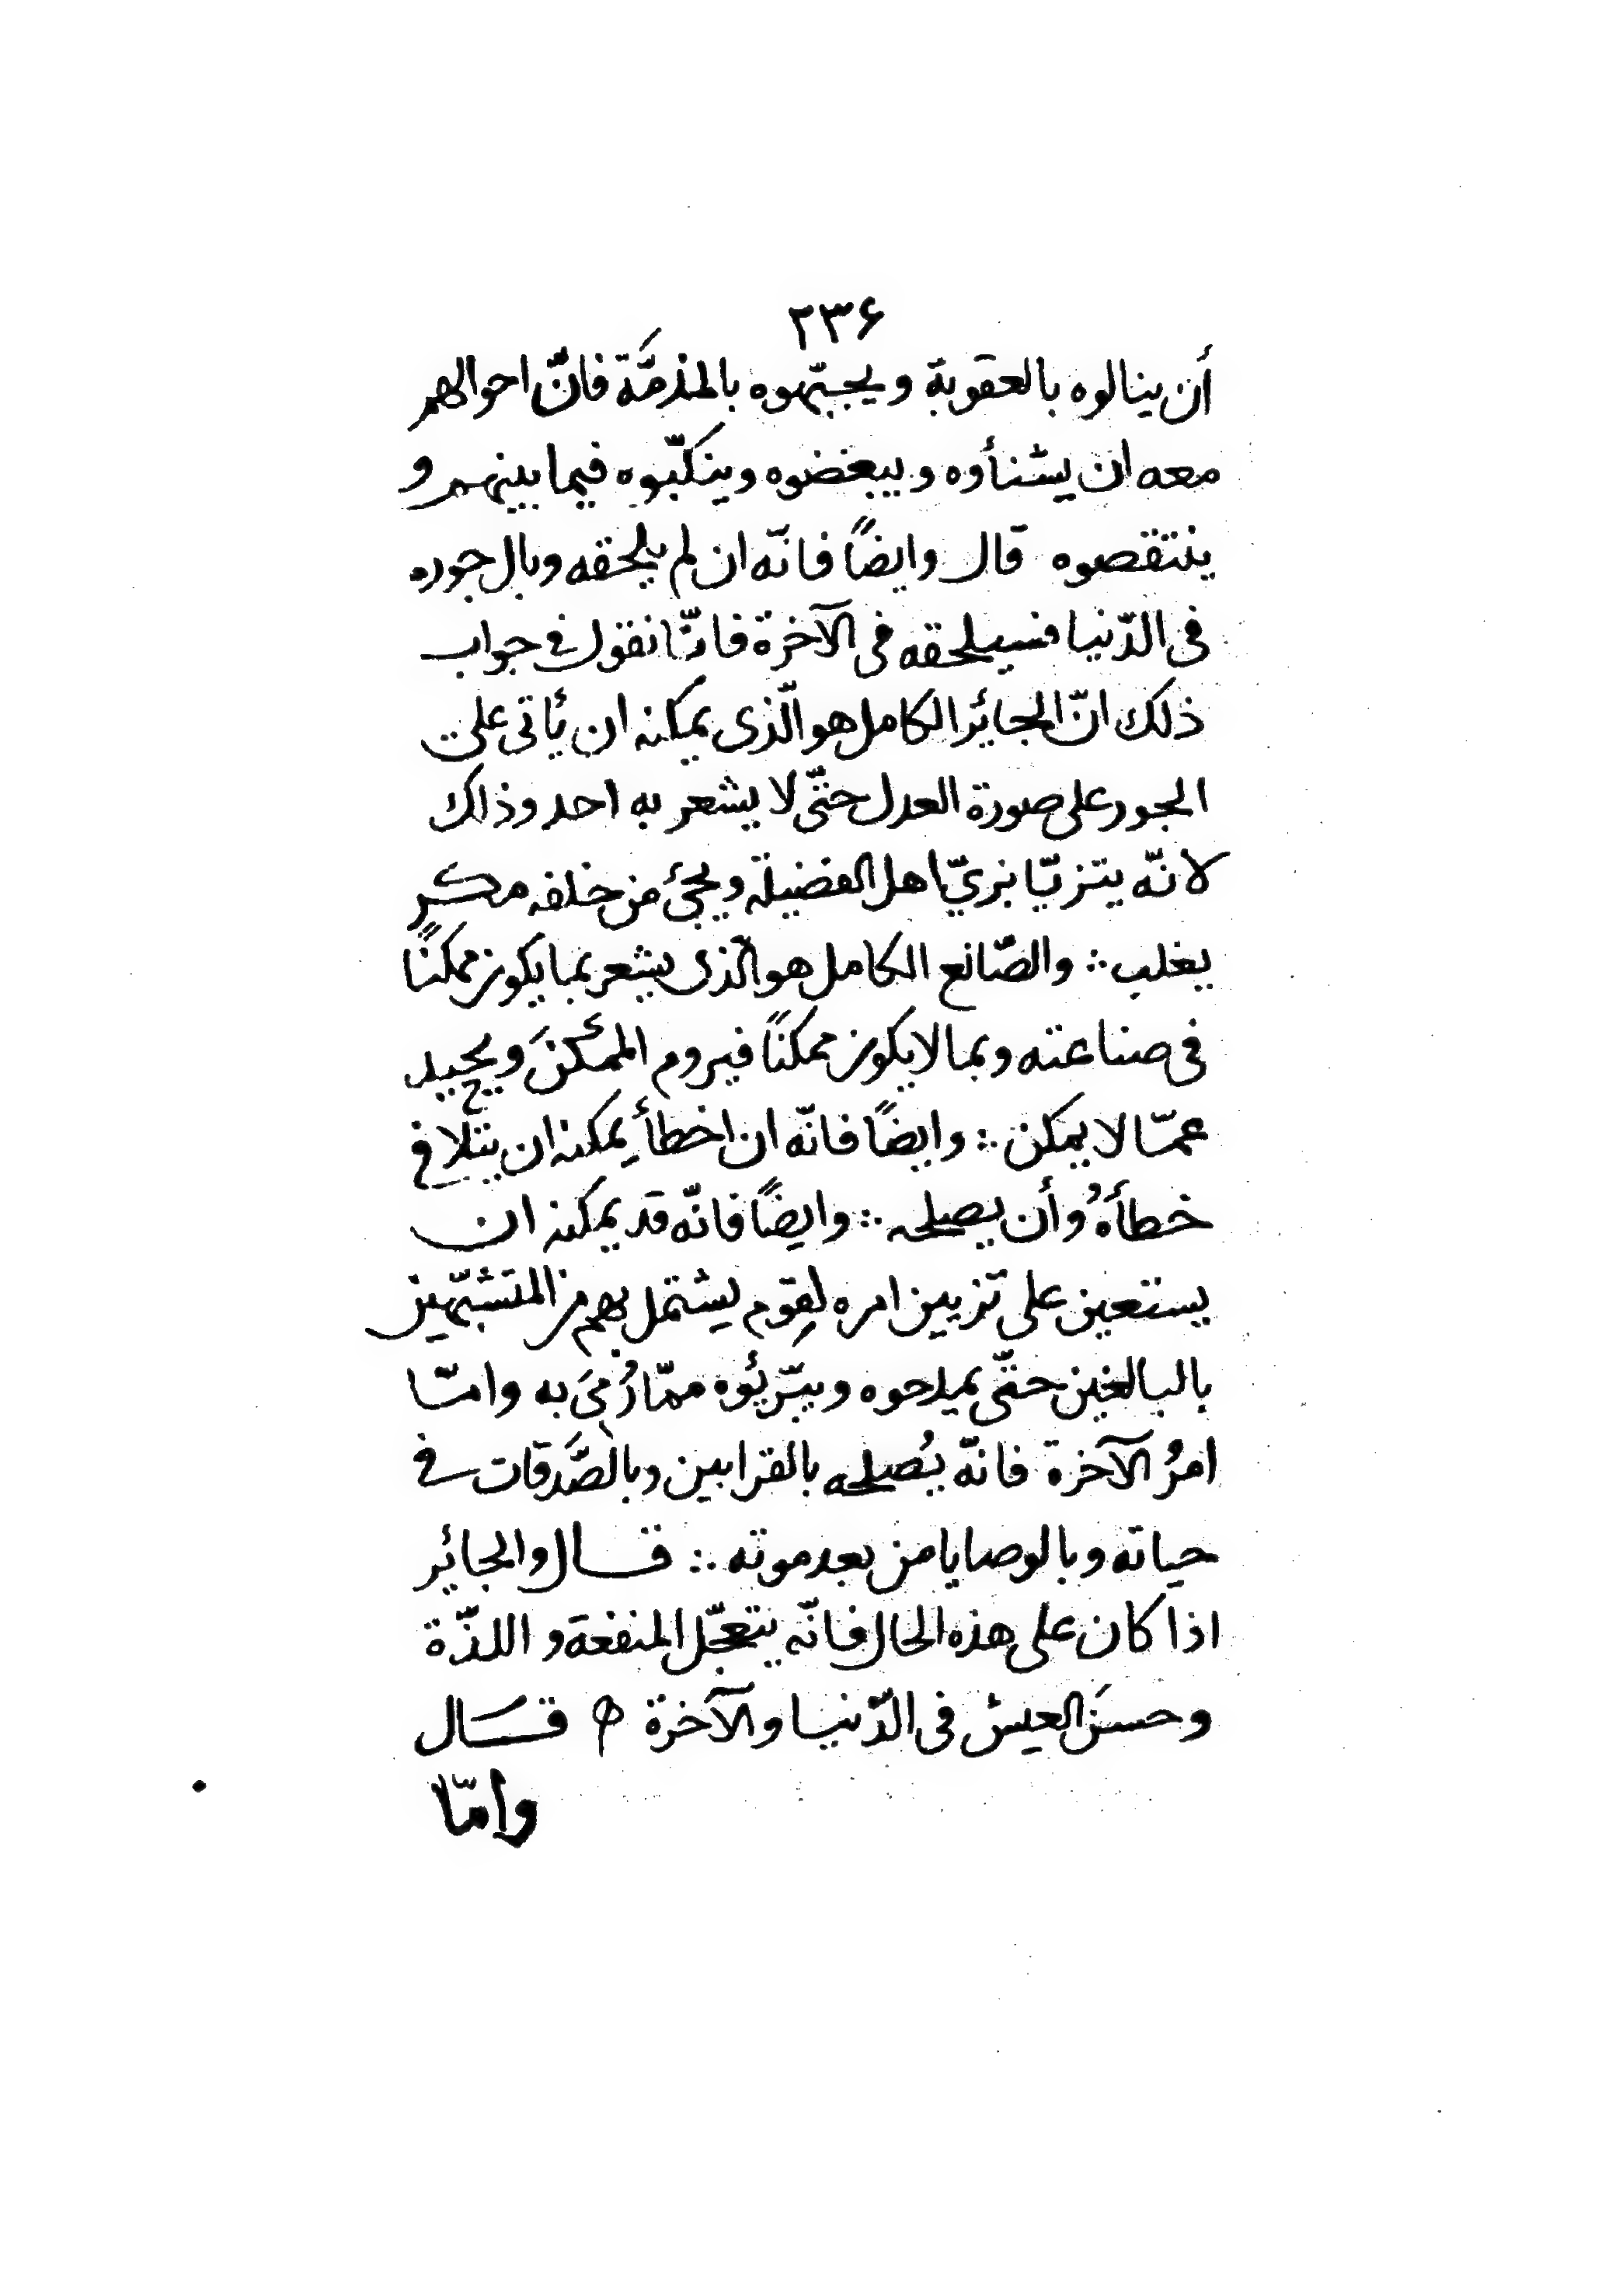 ۲۳۶
أن ينالوه بالعقوبة ويجبّهوه بالمذمَّة فانّ احوالهم
معه ان يشنأوه ويبغضوه وينكّبوه فيما بينهم و
ينتقصوه قال وايضًا فانّه ان لم يلحقه وبال جوره
فى الدّنيا فسيلحقه فى الآخرة فانّا نقول فى جواب
ذلك انّ الجائر الكامل هو الّذى يمكنه ان يأتى على
الجور على صورة العدل حتّى لا يشعر به احد وذاك
لانّه يتزيّا بزيّ اهل الفضيلة ويجئ من خلفه مكر
يغلب ∴ والصّانع الكامل هو الّذى يشعر بما يكون ممكنًا
فى صناعته وبما لا يكون ممكنًا فيروم الممكنَ ويحيد
عمّا لا يمكن ∴ وايضًا فانّه ان اخطأ يمكنه ان يتلافى
خطأهُ وأن يصلحه ∴ وايضًا فانّه قد يمكنه ان
يستعين على تزيين امره لقوم يشتمل بهم من المتشبّهين
بالبالغين حتّى يمدحوه ويبّرئوه ممّا رُمِىَ به وامّا
امرُ الآخرة فانّه يُصلحه بالقرابين وبالصَّدقات فى
حياته وبالوصايا من بعد موته ∴ قال والجائر
اذا كان على هذه الحال فانّه يتعجّل المنفعة و اللذّة
وحسنَ العيش فى الدّنيا والآخرة قَال
وامّا